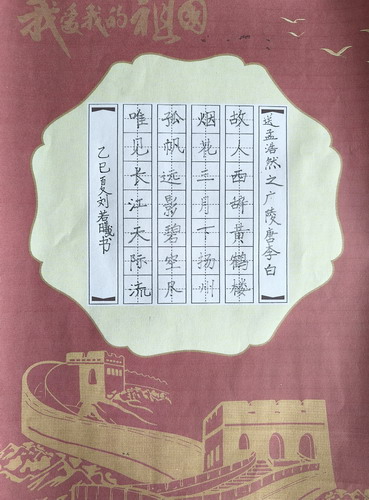 我爱我的祖国
送孟浩然之广陵唐李白
故人西辞黄鹤楼
烟花三月下扬州
孤帆远影碧空尽
唯见长江天际流
乙巳夏刘若曦书